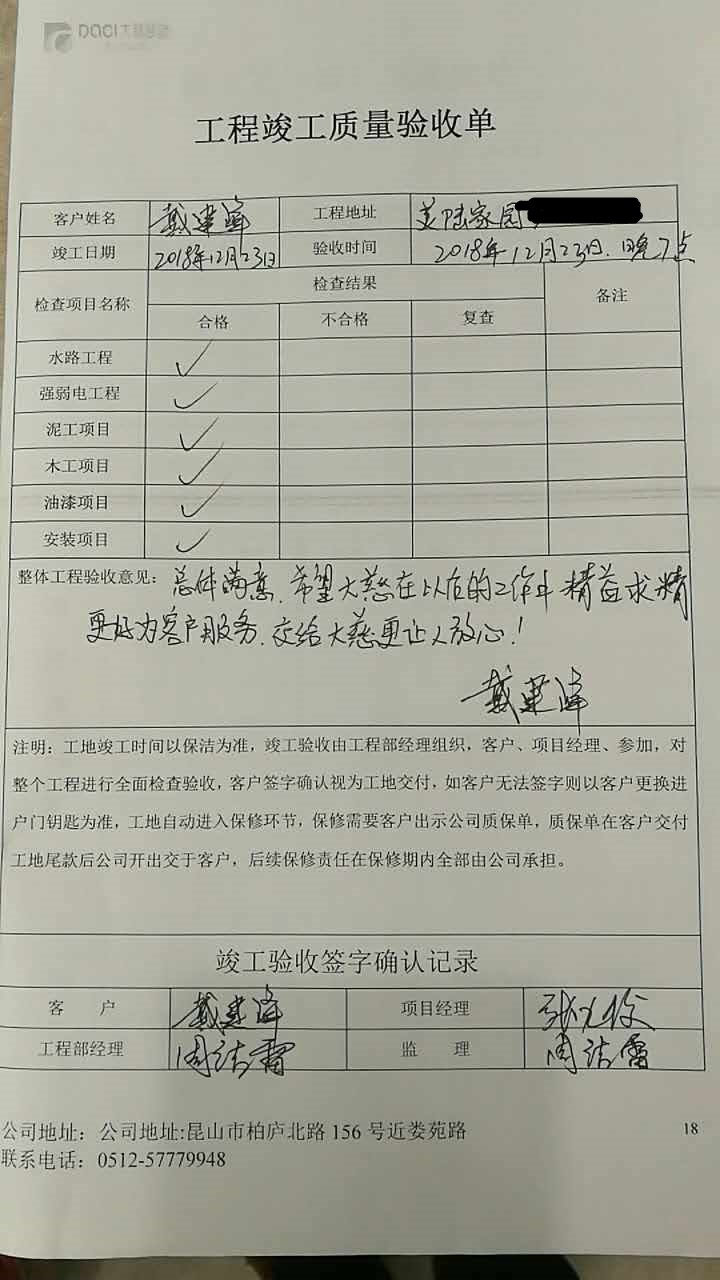 DACI大慈
工程竣工质量验收单
客户姓名 戴建峰 工程地址 美陆家园
竣工日期 2018年12月23日 验收时间 2018年12月23日.晚7点
检查项目名称 检查结果 备注
合格 不合格 复查
水路工程 ✓
强弱电工程 ✓
泥工项目 ✓
木工项目 ✓
油漆项目 ✓
安装项目 ✓
整体工程验收意见：总体满意.希望大慈在以后的工作中精益求精
更好为客户服务.交给大慈更让人放心！
戴建峰
注明：工地竣工时间以保洁为准，竣工验收由工程部经理组织，客户、项目经理、参加，对
整个工程进行全面检查验收，客户签字确认视为工地交付，如客户无法签字则以客户更换进
户门钥匙为准，工地自动进入保修环节，保修需要客户出示公司质保单，质保单在客户交付
工地尾款后公司开出交于客户，后续保修责任在保修期内全部由公司承担。
竣工验收签字确认记录
客 户 戴建峰 项目经理
工程部经理 周洁雷 监 理 周洁雷
公司地址：公司地址:昆山市柏庐北路 156 号近娄苑路 18
联系电话：0512-57779948